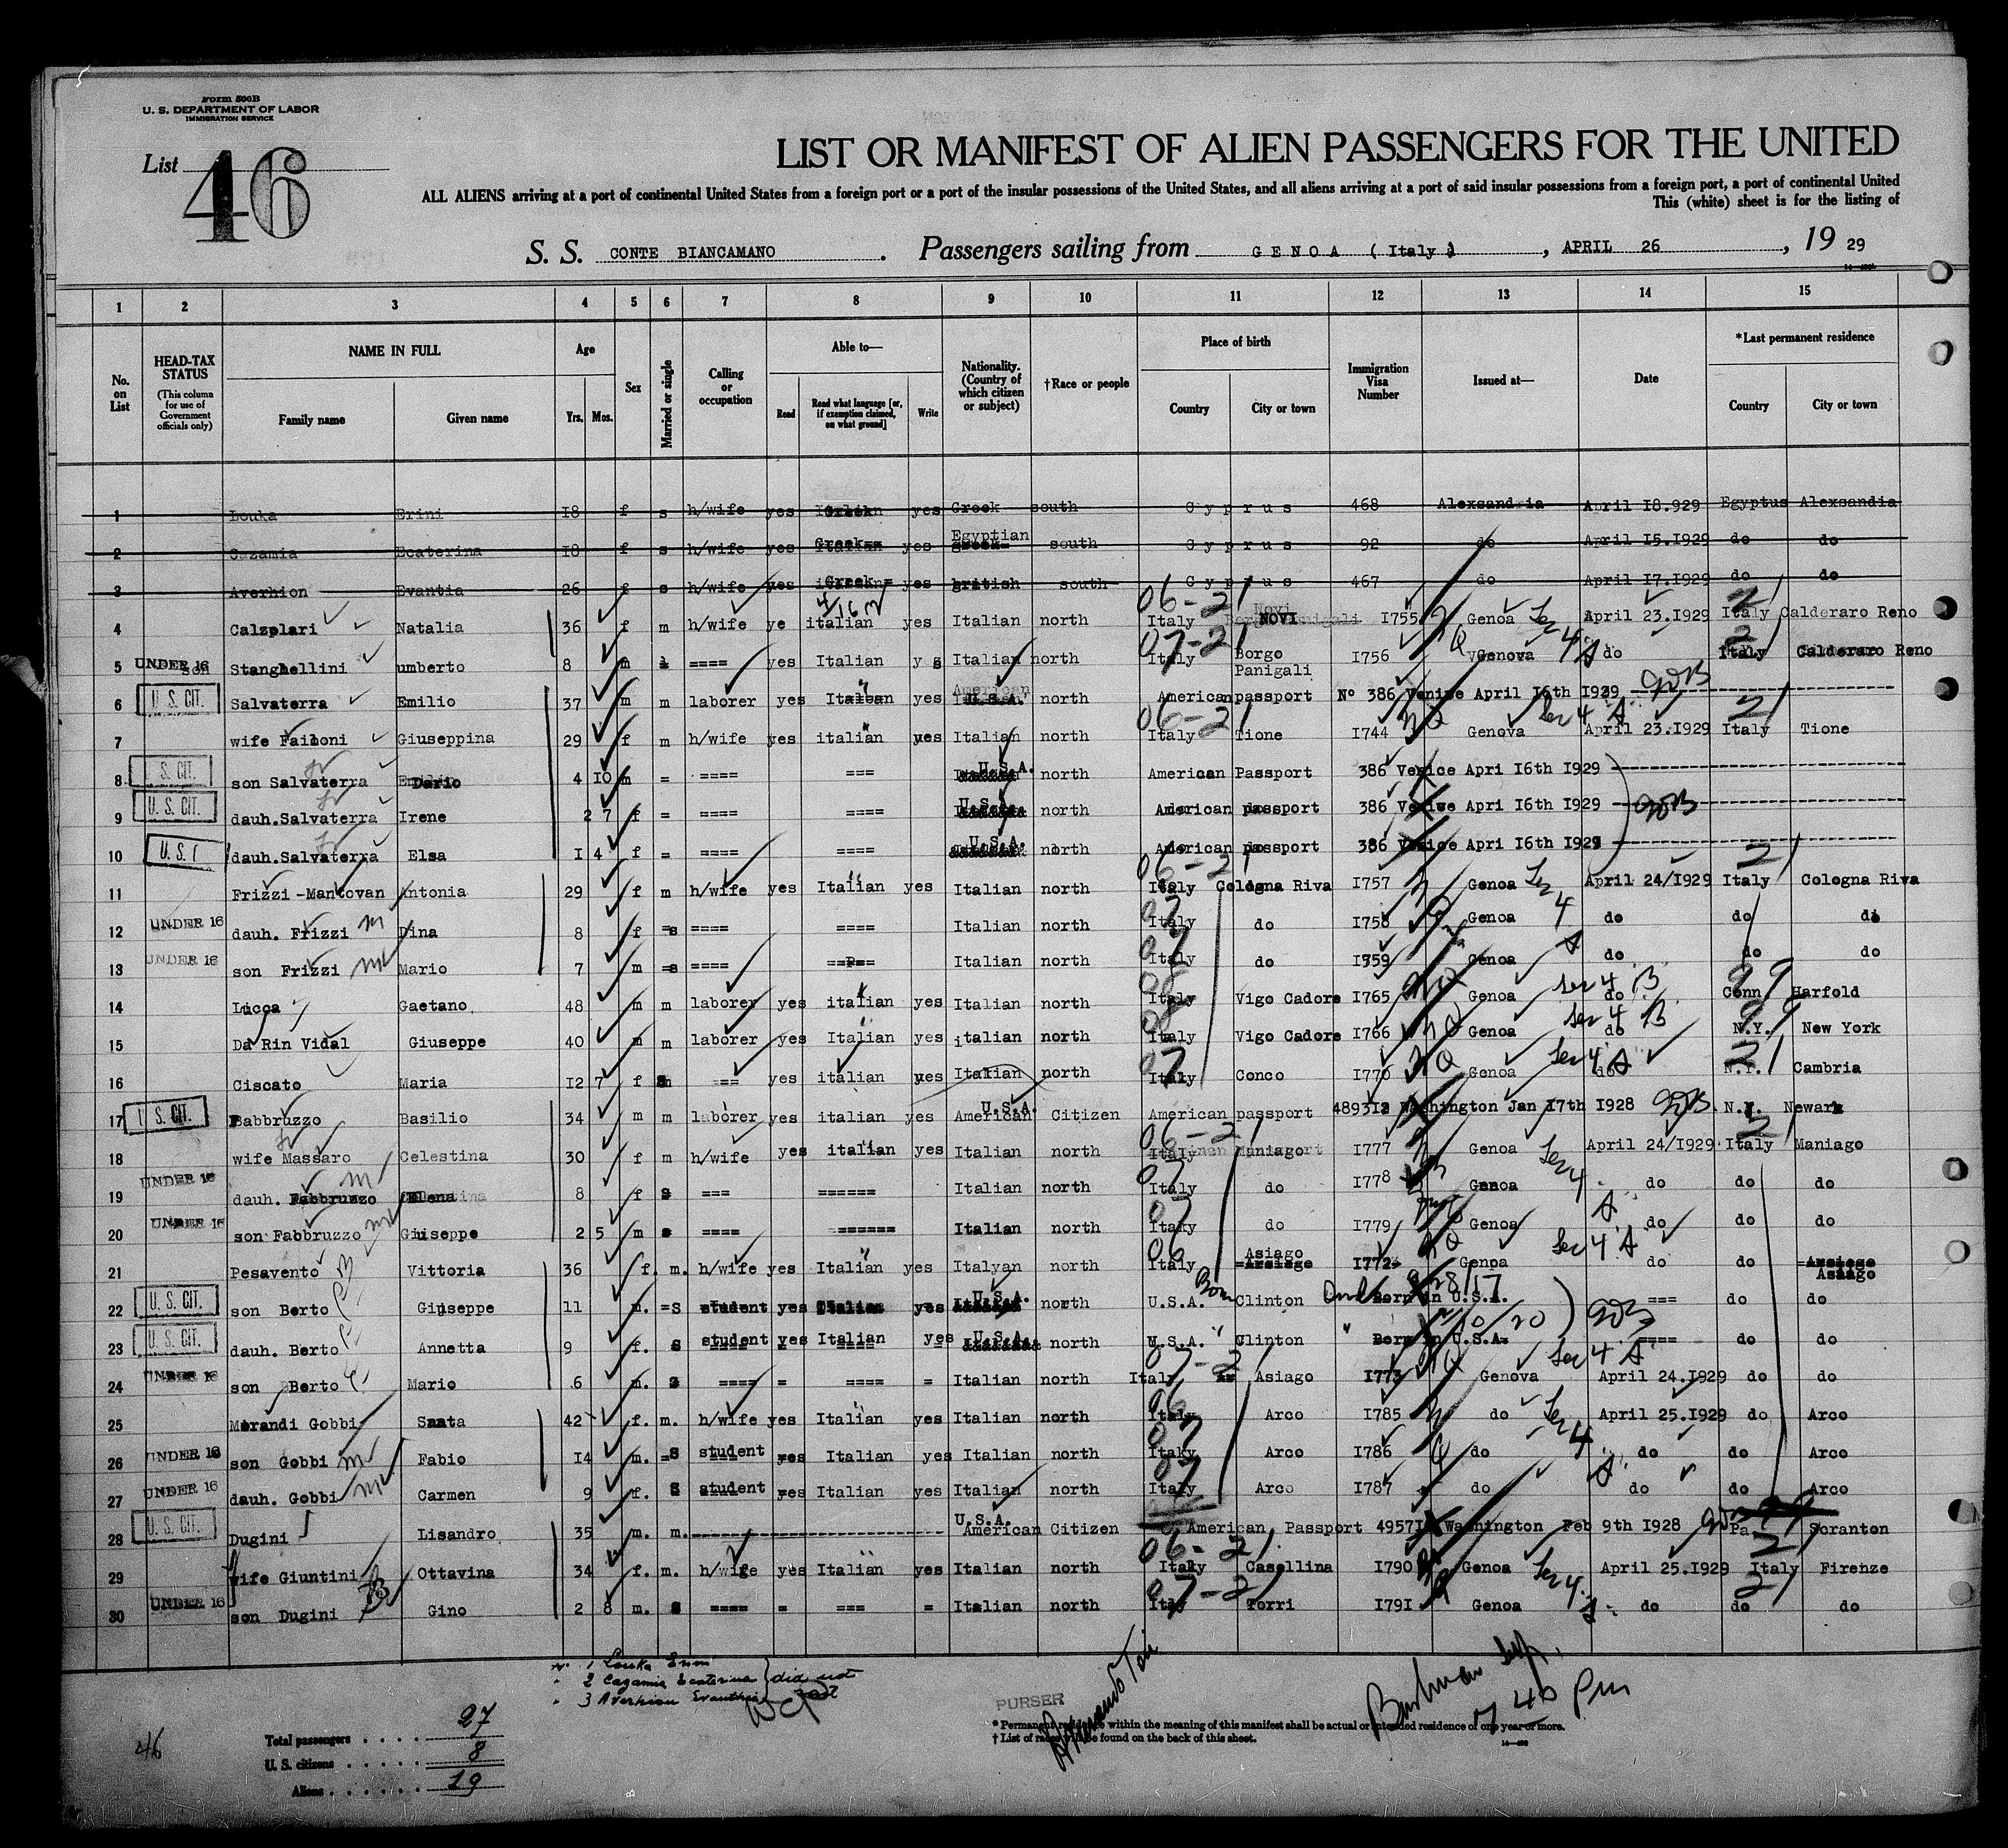 Form 500B
U. S. DEPARTMENT OF LABOR
IMMIGRATION SERVICE
List 46
LIST OR MANIFEST OF ALIEN PASSENGERS FOR THE UNITED
ALL ALIENS arriving at a port of continental United States from a foreign port or a port of the insular possessions of the United States, and all aliens arriving at a port of said insular possessions from a foreign port, a port of continental United
This (white) sheet is for the listing of
S. S. CONTE BIANCAMANO . Passengers sailing from GENOA ( Italy ) , APRIL 26 , 19 29
1 2 3 4 5 6 7 8 9 10 11 12 13 14 15
No. on List
HEAD-TAX STATUS (This column for use of Government officials only)
NAME IN FULL Family name Given name
Age Yrs. Mos.
Sex
Married or single
Calling or occupation
Able to— Read Read what language [or, if exemption claimed, on what ground] Write
Nationality. (Country of which citizen or subject)
†Race or people
Place of birth Country City or town
Immigration Visa Number
Issued at—
Date
*Last permanent residence Country City or town
1 Louka Erini 18 f s h/wife yes Greek yes Greek south Cyprus 468 Alexsandria April 18.929 Egyptus Alexsandia
2 Cazamia Ecaterina 18 f s h/wife yes Greek yes Egyptian south Cyprus 92 do April 15.1929 do do
3 Averhion Evantia 26 f s h/wife yes Greek yes british south Cyprus 467 do April 17.1929 do do
4 Calzolari Natalia 36 f m h/wife ye italian yes Italian north Italy NOVI I755 Genoa April 23.1929 Italy Calderaro Reno
5 UNDER 16 son Stanghellini umberto 8 m ==== yes Italian y s Italian north Italy Borgo Panigali I756 Genova do Italy Calderaro Reno
6 U. S. CIT. Salvaterra Emilio 37 m m laborer yes Italian yes U.S.A. north American passport No 386 Venice April I6th I929
7 wife Failoni Giuseppina 29 f m h/wife yes italian yes Italian north Italy Tione I744 Genova April 23.I929 Italy Tione
8 S. CIT. son Salvaterra Dario 4 IO m = ==== === U.S.A. north American Passport 386 Venice Apri I6th I929
9 U. S. CIT. dauh.Salvaterra Irene 2 7 f = ==== ==== U.S.A. north American passport 386 Venice Apri I6th I929
10 dauh.Salvaterra Elsa I 4 f = ==== ==== U.S.A. north American passport 386 Venice Apri I6th I929
11 Frizzi-Mantovan Antonia 29 f m h/wife yes Italian yes Italian north Italy Cologna Riva I757 Genoa April 24/I929 Italy Cologna Riva
12 UNDER 16 dauh. Frizzi Dina 8 f s ==== ==== Italian north Italy do I758 Genoa do do di
13 UNDER 16 son Frizzi Mario 7 m s ==== Italian north Italy do I759 Genoa do do do
14 Licca Gaetano 48 m m laborer yes italian yes Italian north Italy Vigo Cadore I765 Genoa do Conn Harfold
15 Da Rin Vidal Giuseppe 40 m m laborer yes Italian yes italian north Italy Vigo Cadore I766 Genoa do N.Y. New York
16 Ciscato Maria I2 7 f === yes italian yes Italian north Italy Conco I770 Genoa do N.Y. Cambria
17 S. CIT. Fabbruzzo Basilio 34 m m laborer yes italian yes American U.S.A. Citizen American passport 489312 Washington Jan I7th I928 N.Y. Newark
18 wife Massaro Celestina 30 f m h/wife yes italian yes Italian north Italy Maniago I777 Genoa April 24/I929 Italy Maniago
19 UNDER 16 dauh. Fabbruzzo Elena 8 f S === ====== Italian north Italy do I778 Genoa do do do
20 UNDER 16 son Fabbruzzo Giuseppe 2 5 m s ==== ====== Italian north Itaky do I779 Genoa do do do
21 Pesavento Vittoria 36 f. m. h/wife yes Italian yes Italyan north Italy Asiago I772 Genoa do do Asiago
22 U. S. CIT. son Berto Giuseppe 11 m. S student yes Italian yes U.S.A. north U.S.A. Born Clinton Born in U.S.A. === do do
23 U. S. CIT. dauh. Berto Annetta 9 f. S student yes Italian yes U.S.A. north U.S.A. " Clinton " Born in U.S.A. ==== do do
24 UNDER 16 son Berto Mario 6 m. S ==== = ==== = Italian north Italy Asiago I773 Genova April 24.I929 do do
25 Morandi Gobbi Santa 42 f. m. h/wife yes Italian yes Italian north Italy Arco I785 do April 25.I929 do Arco
26 UNDER 16 son Gobbi Fabio I4 m. S student yes Italian yes Italian north Itaky Arco I786 do do do Arco
27 UNDER 16 dauh. Gobbi Carmen 9 f. S student yes Italian yes Italian north Italy Arco I787 do do do Arco
28 U. S. CIT. Dugini Lisandro 35 m. m. U.S.A. American Citizen American Passport 4957I Washington Feb 9th I928 Pa Scranton
29 wife Giuntini Ottavina 34 f. m. h/wife yes Italian yes Italian north Italy Casellina I790 Genoa April 25.I929 Italy Firenze
30 UNDER 16 son Dugini Gino 2 8 m. S ==== = === = Italian north Italy Torri I79I Genoa do do do
1 Louka Erini
" 2 Cazamia Ecaterina } did not
" 3 Averhion Evanthia
46
Total passengers . . . . 27
U. S. citizens . . . . . 8
Aliens . . . . . . 19
PURSER
7 40 Pm
* Permanent residence within the meaning of this manifest shall be actual or intended residence of one year or more.
† List of races will be found on the back of this sheet.